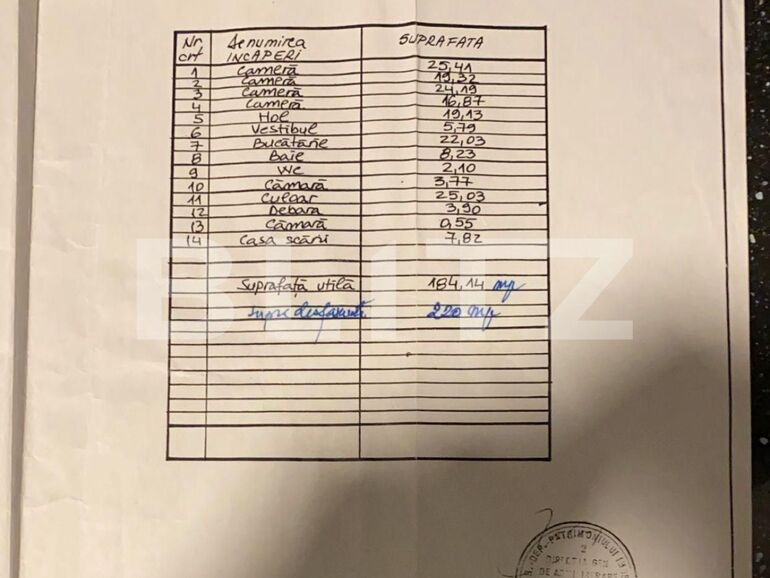 Nr crt Denumirea INCAPERI SUPRAFATA
1 Cameră 25,41
2 Cameră 19,32
3 Cameră 24,19
4 Cameră 16,87
5 Hol 19,13
6 Vestibul 5,79
7 Bucătărie 22,03
8 Baie 8,23
9 WC 2,10
10 Cămară 3,77
11 Culoar 25,03
12 Debara 3,90
13 Cămară 0,55
14 Casa scării 7,82
BLITZ
Suprafață utilă 184,14 mp
Supr. desfășurată 220 mp
DEP. PATRIMONIULUI
2
DIRECTIA GEN